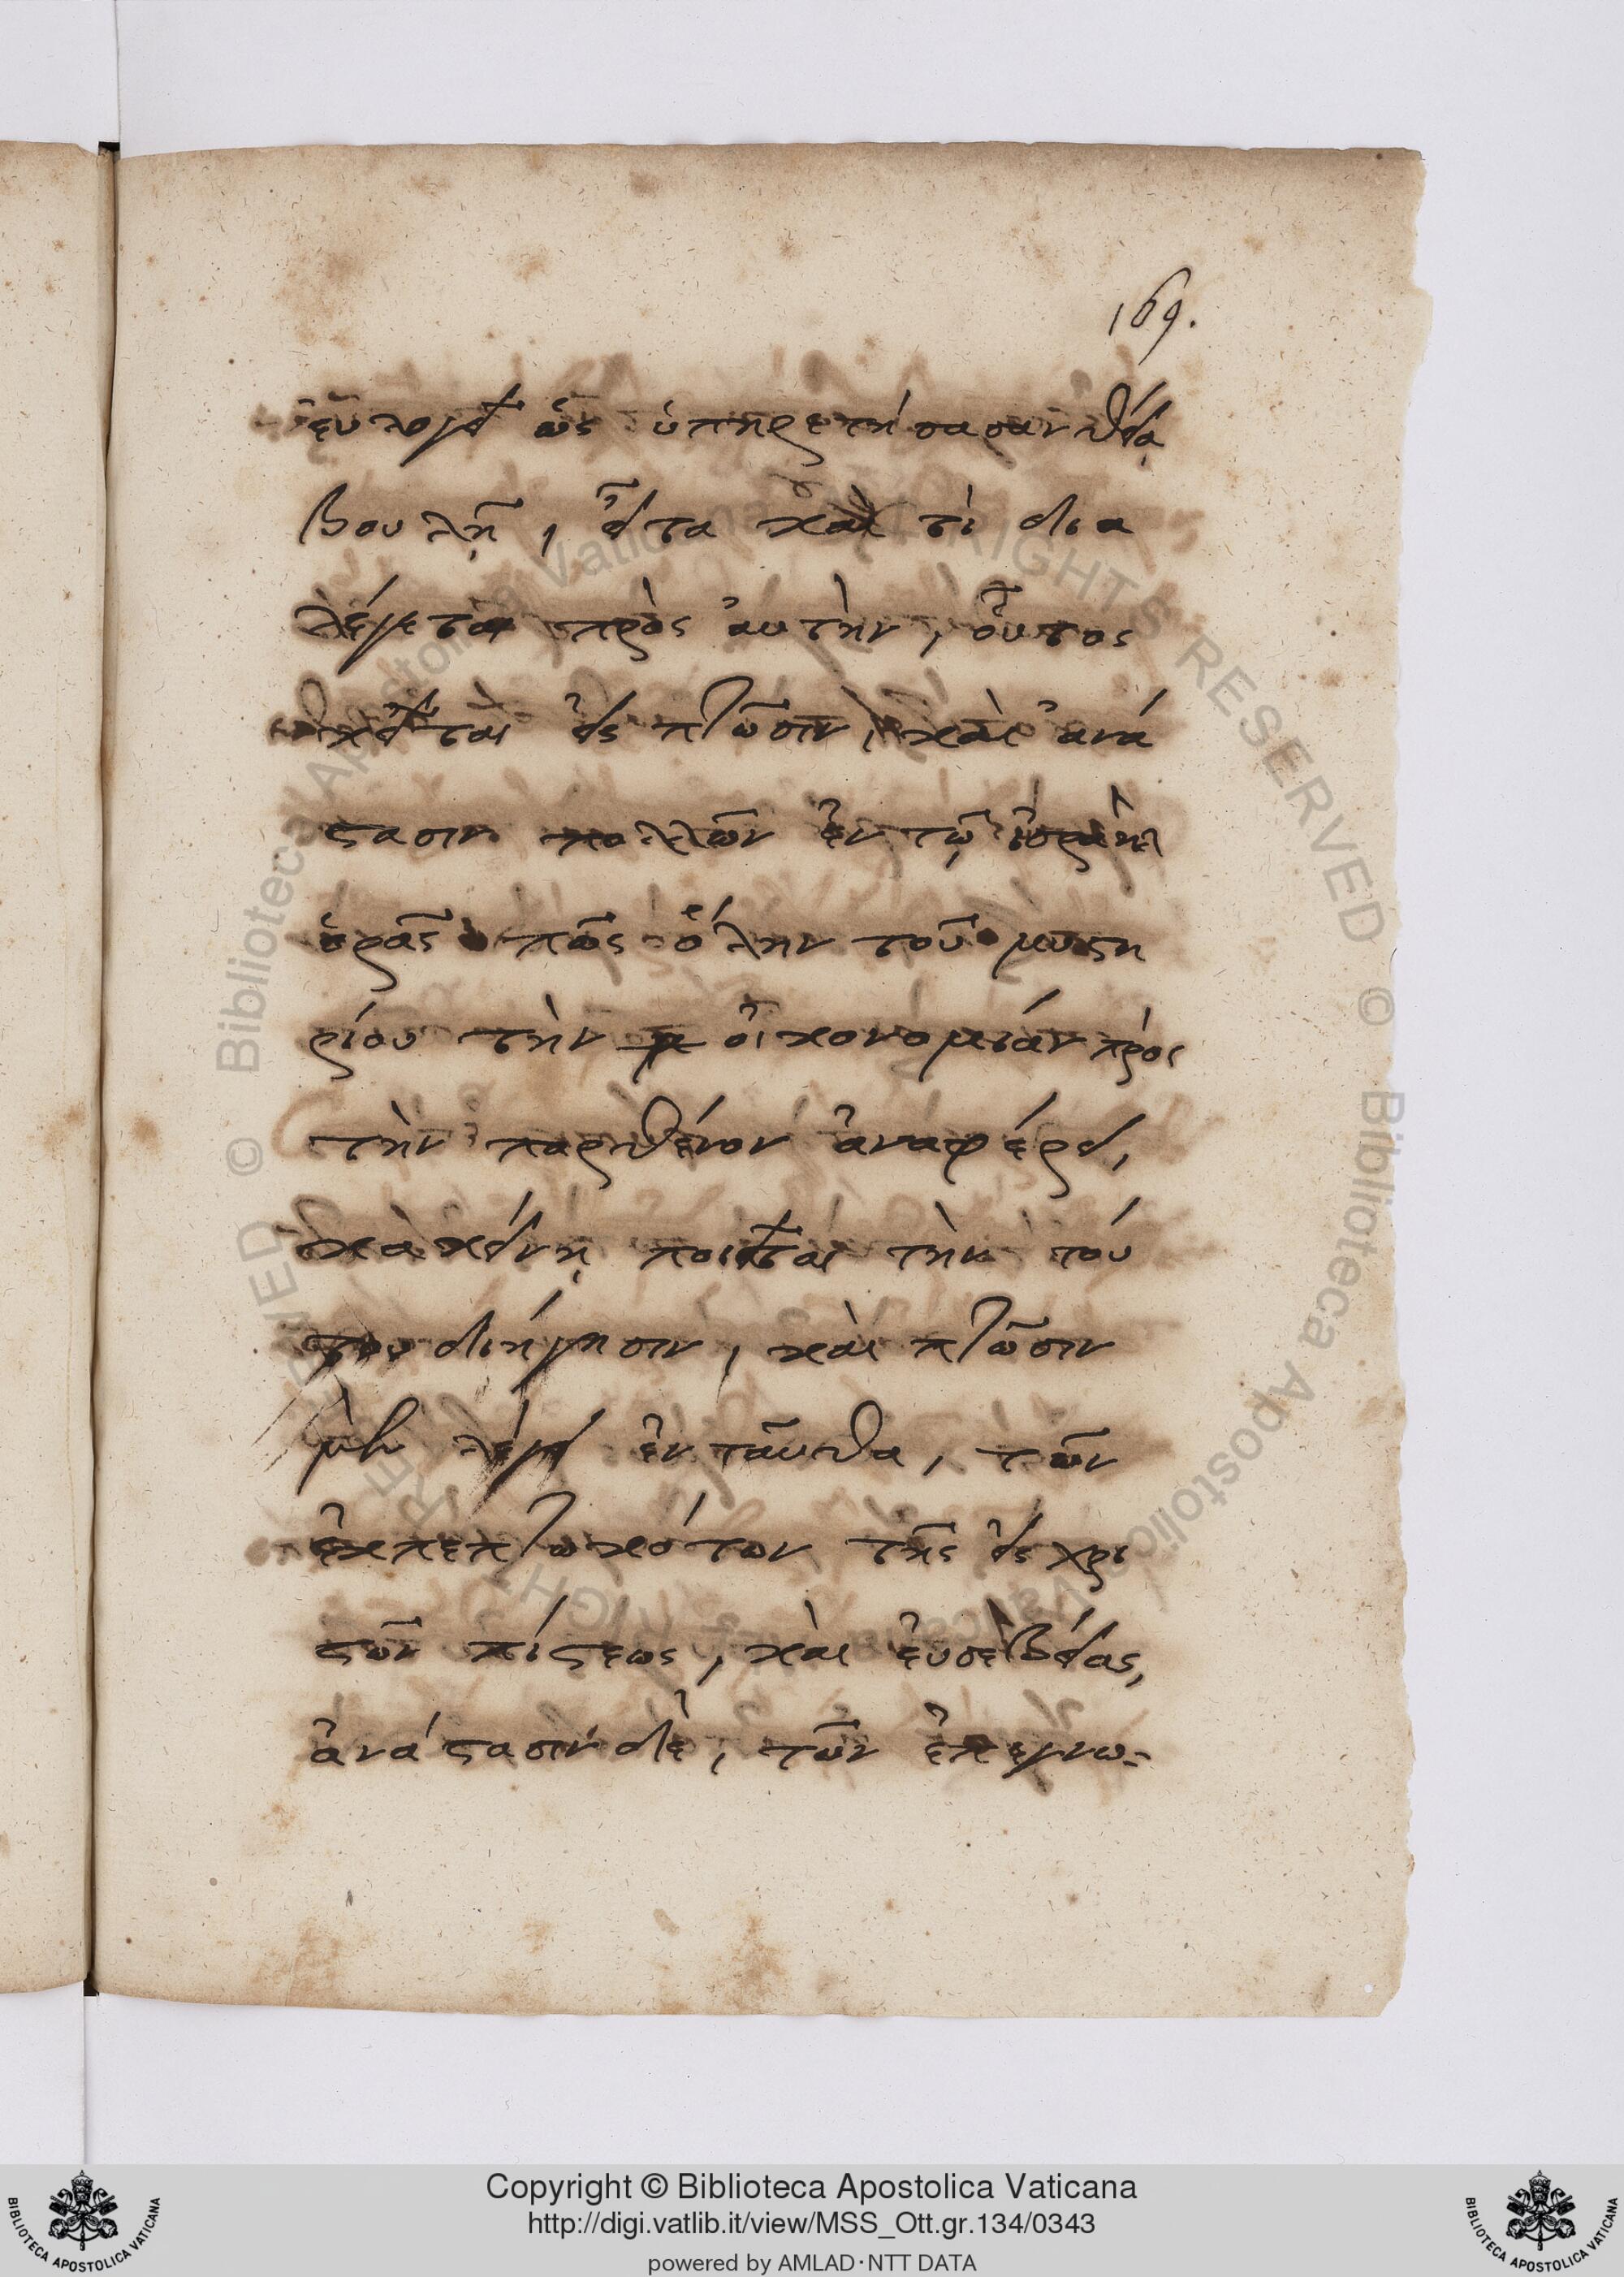 169.
εὐλογεῖ ὡς ὑπηρετήσασαν θείᾳ
βουλῇ, εἶτα καὶ τὶ δια
λέγεται πρὸς ἀυτὴν, οὗτος
κεῖται εἰς πτῶσιν, καὶ ἀνά
στασιν πολλῶν ἐν τῷ ἰσραὴλ
ὁρᾶς πῶς ὅλην τοῦ μυστη
ρίου τὴν οἰκονομίαν πρὸς
τὴν παρθένον ἀναφέρει,
κᾀκείνῃ ποιεῖται τὴν τού
του διήγησιν, καὶ πτῶσιν
μὲν λέγει ἐνταῦθα, τῶν
ἐκπεπτωκότων τῆς εἰς χρι
στὸν πίστεως, καὶ ἐυσεβείας,
ἀνάστασιν δὲ, τῶν ἐπεγνω-
Copyright © Biblioteca Apostolica Vaticana
http://digi.vatlib.it/view/MSS_Ott.gr.134/0343
powered by AMLAD·NTT DATA
BIBLIOTECA APOSTOLICA VATICANA
BIBLIOTECA APOSTOLICA VATICANA